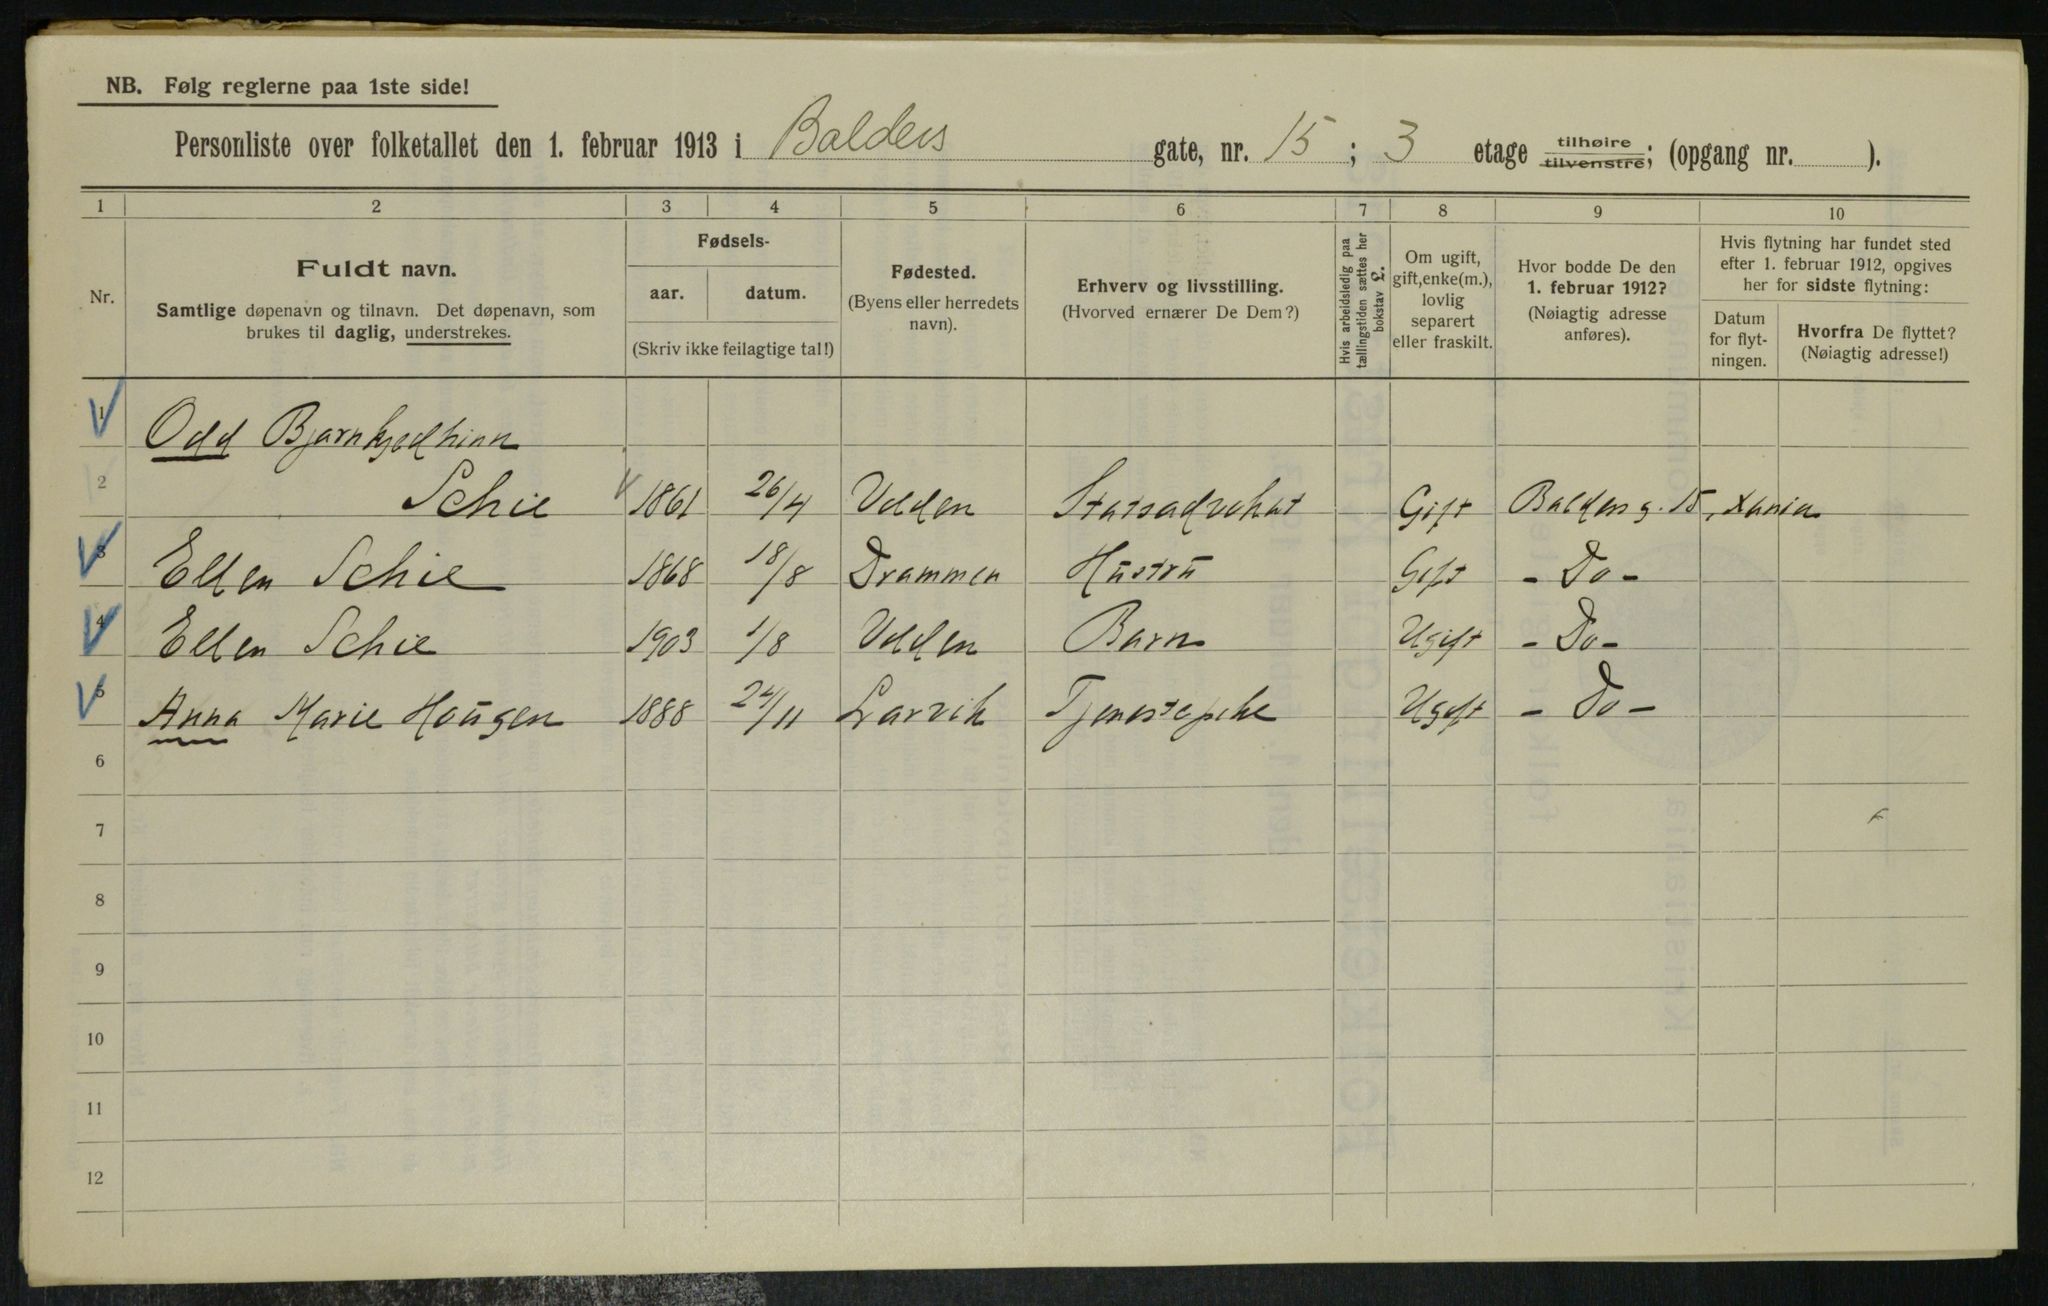 NB. Følg reglerne paa 1ste side!
Personliste over folketallet den 1. februar 1913 i Balders gate, nr. 15 ; 3 etage tilhøire tilvenstre; (opgang nr. ).
1 2 3 4 5 6 7 8 9 10
Nr.
Fuldt navn.
Samtlige døpenavn og tilnavn. Det døpenavn, som
brukes til daglig, understrekes.
Fødsels-
aar. datum.
(Skriv ikke feilagtige tal!)
Fødested.
(Byens eller herredets
navn).
Erhverv og livsstilling.
(Hvorved ernærer De Dem?)
Hvis arbeidsledig paa
tællingstiden sættes her
bokstav L.
Om ugift,
gift, enke(m.),
lovlig
separert
eller fraskilt.
Hvor bodde De den
1. februar 1912?
(Nøiagtig adresse
anføres).
Hvis flytning har fundet sted
efter 1. februar 1912, opgives
her for sidste flytning:
Datum
for flyt-
ningen.
Hvorfra De flyttet?
(Nøiagtig adresse!)
1 Odd
2 Schie 1861 26/4 Statsadvokat Gift Baldersg. 15, Xania
3 Ellen Schie 1868 18/8 Drammen Hustru Gift - Do -
4 Ellen Schie 1903 1/8 Barn Ugift - Do -
5 Anna Marie Haugen 1888 24/11 Larvik Tjenestepike Ugift - Do -
6
7
8
9
10
11
12